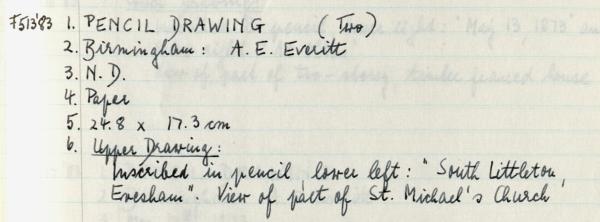 F513'83 1. PENCIL DRAWING (Two)
2. Birmingham: A. E. Everitt
3. N.D.
4. Paper
5. 24.8 x 17.3 cm
6. Upper Drawing:
Inscribed in pencil, lower left: "South Littleton,
Evesham". View of part of St. Michael's Church,